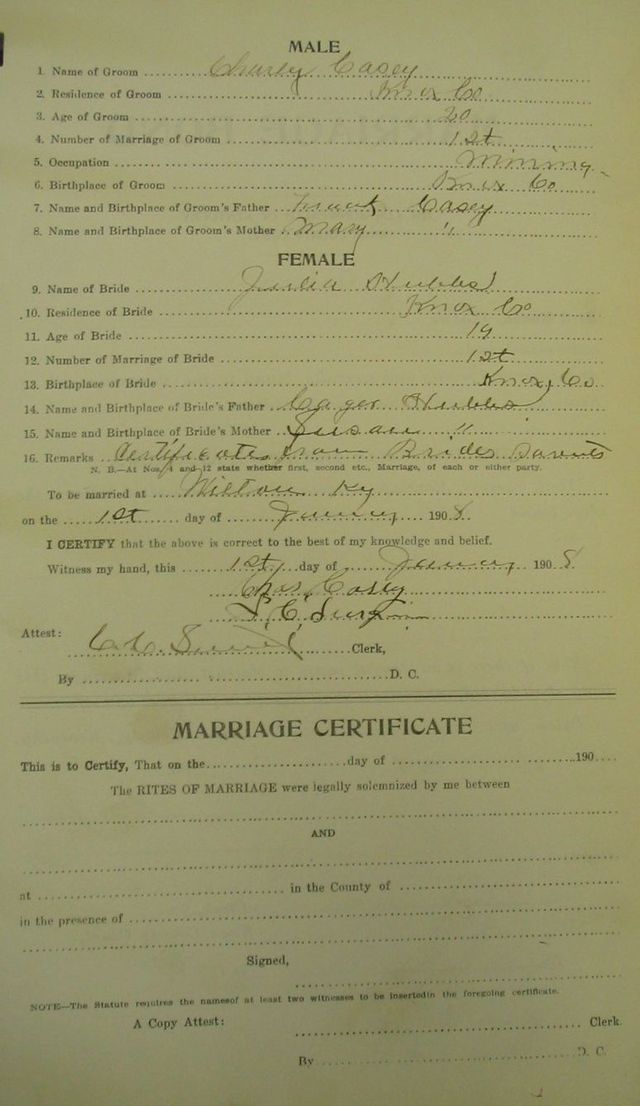 MALE
1. Name of Groom Charley Casey
2. Residence of Groom Knox Co
3. Age of Groom 20
4. Number of Marriage of Groom 1st
5. Occupation Mining
6. Birthplace of Groom Knox Co
7. Name and Birthplace of Groom's Father Casey
8. Name and Birthplace of Groom's Mother Mary "
FEMALE
9. Name of Bride Julia Hubbs
10. Residence of Bride Knox Co
11. Age of Bride 19
12. Number of Marriage of Bride 1st
13. Birthplace of Bride Knox Co
14. Name and Birthplace of Bride's Father Cager Hubbs
15. Name and Birthplace of Bride's Mother Susan "
16. Remarks Certificate from Brides parents
N. B.—At Nos. 4 and 12 state whether first, second etc., Marriage, of each or either party.
To be married at Wilton Ky
on the 1st day of January 1908
I CERTIFY that the above is correct to the best of my knowledge and belief.
Witness my hand, this 1st day of January, 1908
Chas Casey
Attest:
Clerk,
By D. C.
MARRIAGE CERTIFICATE
This is to Certify, That on the day of 190
The RITES OF MARRIAGE were legally solemnized by me between
AND
at in the County of
in the presence of
Signed,
NOTE—The Statute requires the namesof at least two witnesses to be insertedin the foregoing certificate.
A Copy Attest: Clerk.
By D. C.